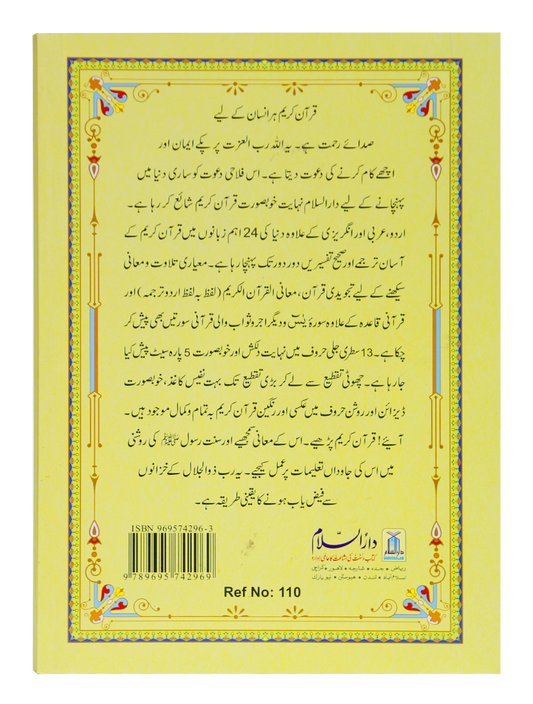 قرآن کریم ہر انسان کے لیے
صدائے رحمت ہے۔ یہ اللہ رب العزت پر پکے ایمان اور
اچھے کام کرنے کی دعوت دیتا ہے۔ اس فلاحی دعوت کو ساری دنیا میں
پہنچانے کے لیے دارالسلام نہایت خوبصورت قرآن کریم شائع کر رہا ہے۔
اردو، عربی اور انگریزی کے علاوہ دنیا کی 24 اہم زبانوں میں قرآن کریم کے
آسان ترجمے اور صحیح تفسیریں دور دور تک پہنچا رہا ہے۔ معیاری تلاوت و معانی
سیکھنے کے لیے تجویدی قرآن، معانی القرآن الکریم (لفظ بہ لفظ اردو ترجمہ) اور
قرآنی قاعدہ کے علاوہ سورۂ یٰسٓ و دیگر اجر و ثواب والی قرآنی سورتیں بھی پیش کر
چکا ہے۔ 13 سطری جلی حروف میں نہایت دلکش اور خوبصورت 5 پارہ سیٹ پیش کیا
جا رہا ہے۔ چھوٹی تقطیع سے لے کر بڑی تقطیع تک بہت نفیس کاغذ، خوبصورت
ڈیزائن اور روشن حروف میں عکسی اور رنگین قرآن کریم بہ تمام و کمال موجود ہیں۔
آیئے! قرآن کریم پڑھیے۔ اس کے معانی سمجھیے اور سنت رسول ﷺ کی روشنی
میں اس کی جاوداں تعلیمات پر عمل کیجیے۔ یہ رب ذوالجلال کے خزانوں
سے فیض یاب ہونے کا یقینی طریقہ ہے۔
ISBN 969574296-3
9 789695 742969
دارُالسّلام
کتاب و سنت کی اشاعت کا عالمی ادارہ
ریاض • جدہ • شارجہ • لاہور • کراچی
اسلام آباد • لندن • ہیوسٹن • نیو یارک
Ref No: 110